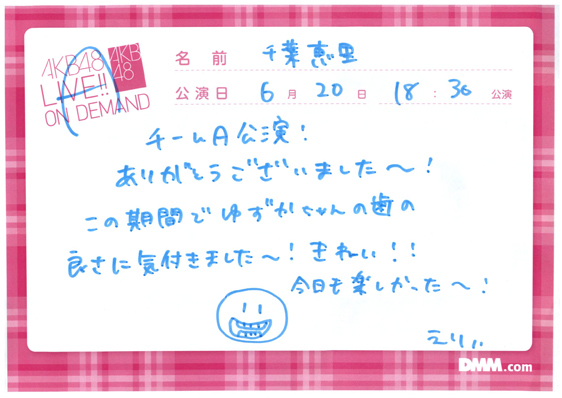 AKB48
LIVE!!
ON DEMAND
AKB
48
A
名前 千葉恵里
公演日 6月20日 18:30 公演
チームA公演!
ありがとうございました〜!
この期間でゆずかちゃんの歯の
良さに気付きました〜!きれい!!
今日も楽しかった〜!
えりぃ
DMM.com